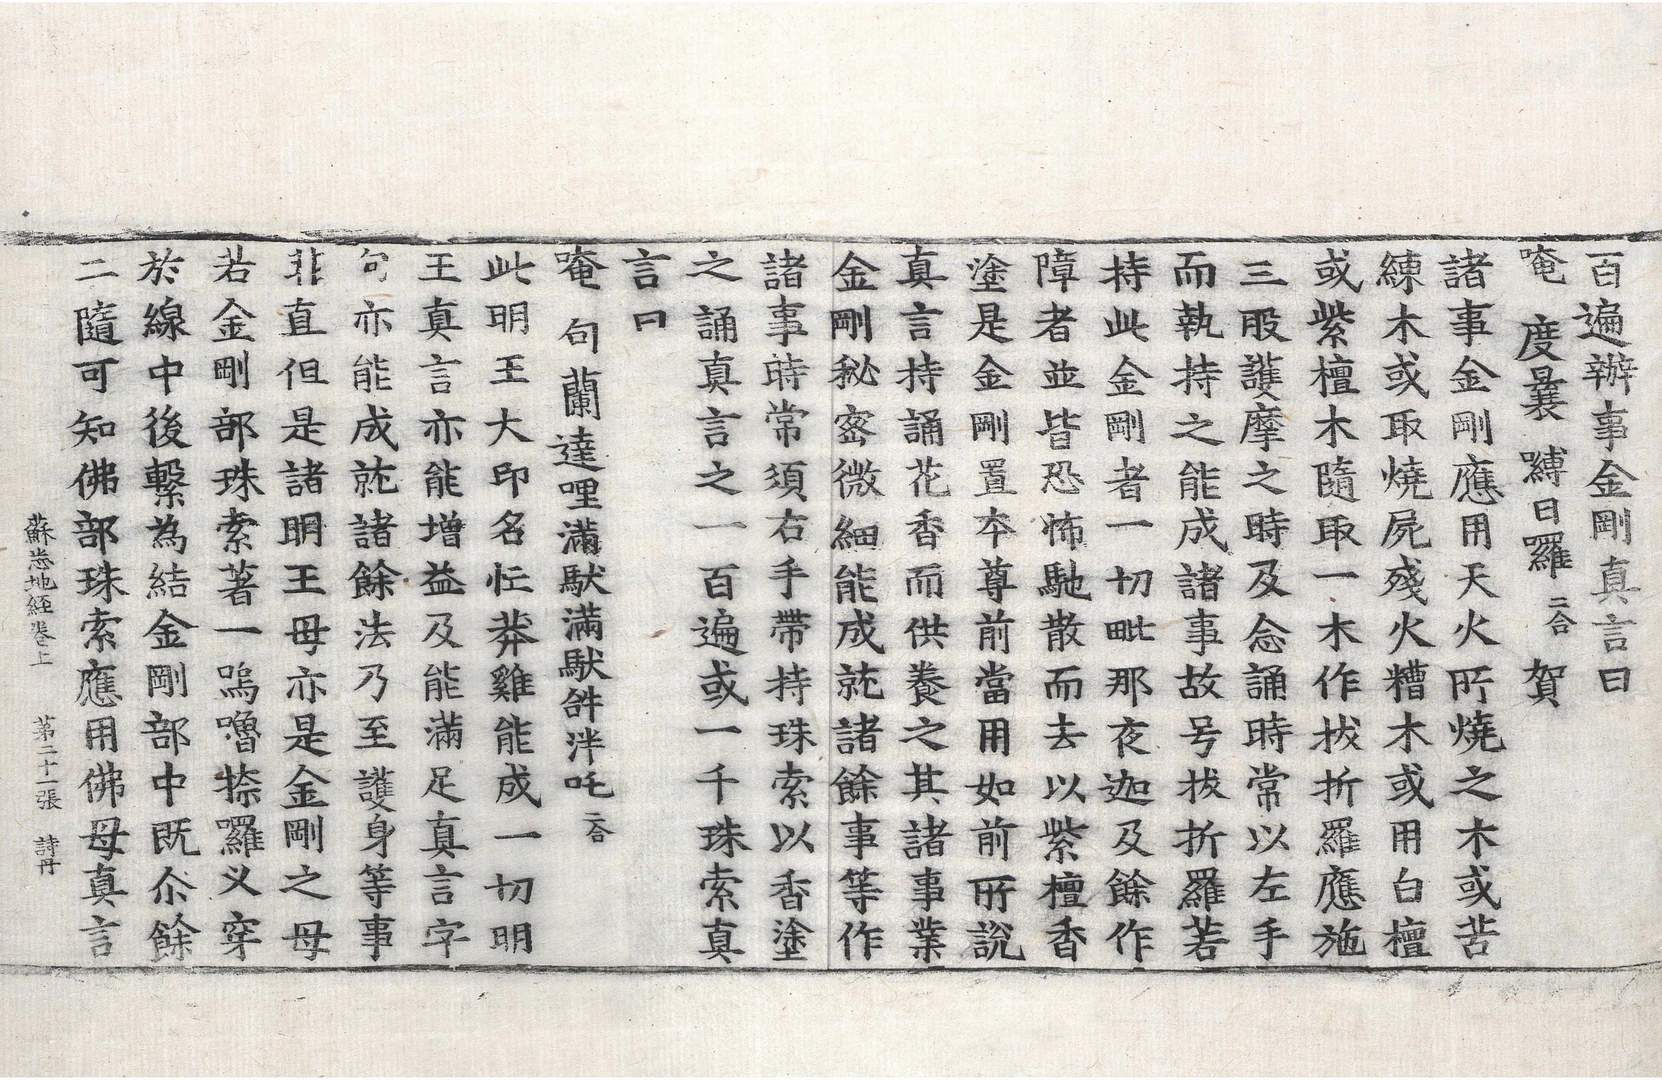 百遍辦事金剛真言曰
唵 度曩 嚩日囉 二合 賀
諸事金剛應用天火所燒之木或苦
練木或取燒屍殘火糟木或用白檀
或紫檀木隨取一木作拔折羅應施
三股護摩之時及念誦時常以左手
而執持之能成諸事故号拔折羅若
持此金剛者一切毗那夜迦及餘作
障者並皆恐怖馳散而去以紫檀香
塗是金剛置本尊前當用如前所說
真言持誦花香而供養之其諸事業
金剛秘密微細能成就諸餘事等作
諸事時常須右手帶持珠索以香塗
之誦真言之一百遍或一千珠索真
言曰
唵 句蘭達哩滿馱滿馱𤙖泮吒 二合
此明王大印名忙莽雞能成一切明
王真言亦能增益及能滿足真言字
句亦能成就諸餘法乃至護身等事
非直但是諸明王母亦是金剛之母
若金剛部珠索著一嗚嚕捺囉义穿
於線中後繫為結金剛部中既尒餘
二隨可知佛部珠索應用佛母真言
蘇悉地經卷上 第二十一張 詩丹